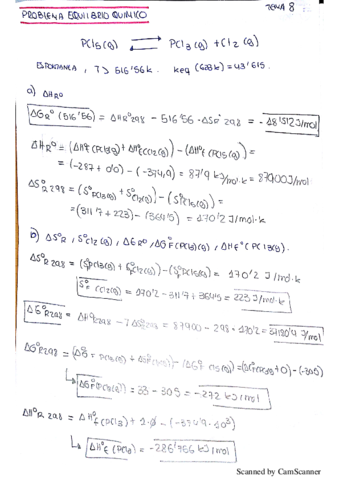 TEMA 8
PROBLEMA EQUILIBRIO QUIMICO
PCl5(g) ⇌ PCl3(g) + Cl2(g)
ESPONTANEA, T > 516'56K. Keq (628K) = 43'615.
a) ΔHR°
ΔGR°(516'56) = ΔHR°298 - 516'56 · ΔSR°298 =
ΔHR° = (ΔHf°(PCl3(g)) + ΔHf°(Cl2(g))) - (ΔHf°(PCl5(g)) =
= (-287 + 0'0) - (-374'9) = 87'9 kJ/mol·k = 87900J/mol
ΔS°R 298 = (S°PCl3(g) + S°Cl2(g)) - (S°PCl5(g)) =
= (311'7 + 223) - (364'5) = 170'2 J/mol·k
b) ΔS°R, S°Cl2(g), ΔGR°, ΔG°f(PCl3)(g), ΔHf°(PCl3(g)).
ΔS°R298 = (S°PCl3(g) + S°Cl2(g)) - (S°PCl5(g)) = 170'2 J/mol·k
S°Cl2(g) = 170'2 - 311'7 + 364'5 = 223 J/mol·k
ΔG°R298 = ΔH°R298 - TΔS°R298 = 87900 - 298 · 170'2 = J/mol
ΔG°R298 = (ΔG°f PCl3(g) + ΔG°f Cl2(g)) - (ΔG°f PCl5(g)) = (ΔG°f PCl3 + 0) - (-305)
ΔG°f(PCl3(g)) = 33 - 305 = -272 kJ/mol
ΔH°R 298 = ΔH°f(PCl3) + 2·0 - (-374'9 · 10³)
ΔH°f(PCl3) = kJ/mol
Scanned by CamScanner